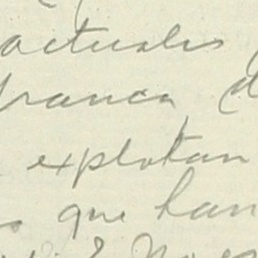 actuales
franca
explotan
que han